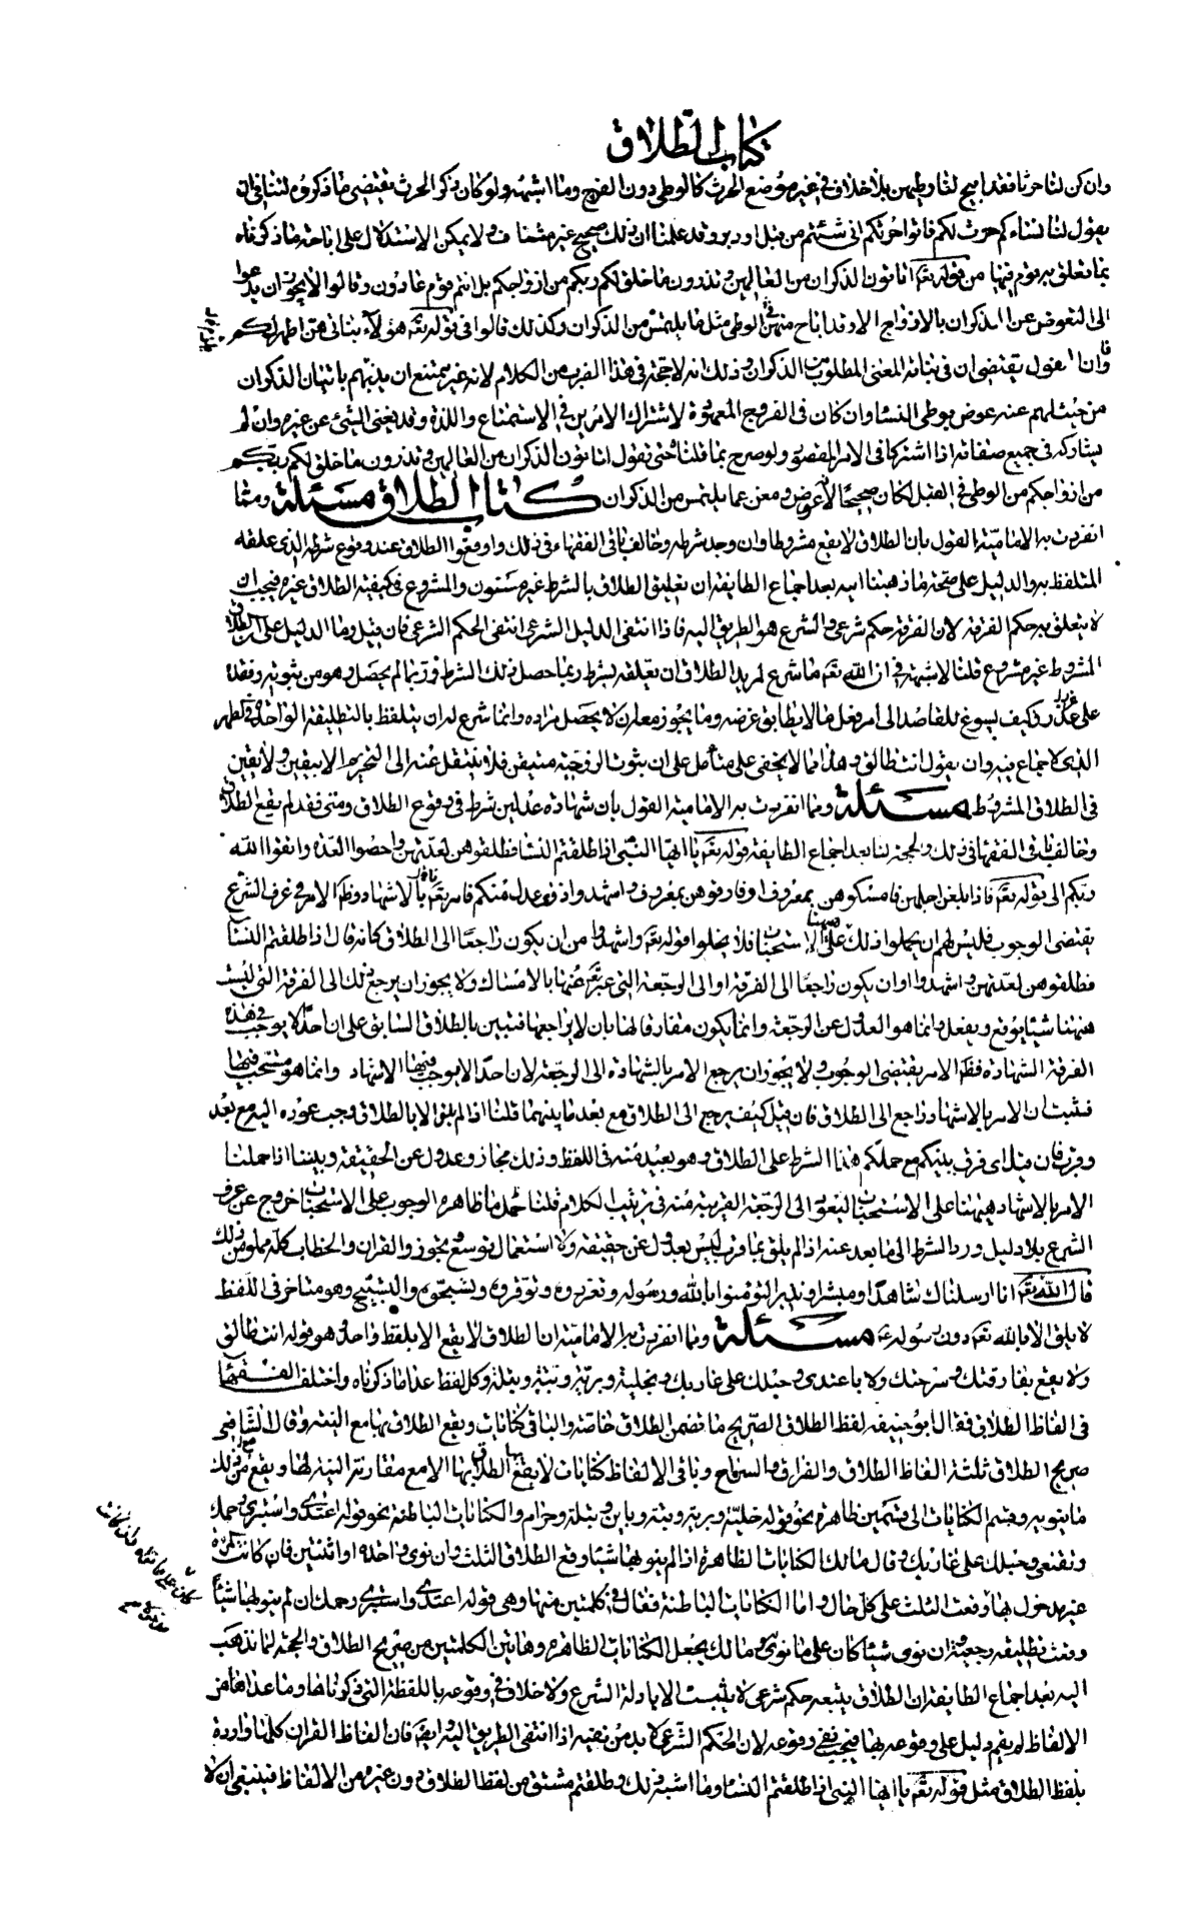 كتاب الطلاق
وان كن لنا حرثا فقد ابيح لنا وطيهن بلا خلاف في غير موضع الحرث كالوطي دون الفرج وما اشبهه ولو كان ذكر الحرث يقتضي ما ذكروه لتنافى ان
يقول لنا نساءكم حرث لكم فاتوا حرثكم انى شئتم من قبل او دبر وقد علمنا ان ذلك صحيح غير متناف ولا يمكن الاستدلال على اباحة ما ذكرناه
بما تعلق به قوم فيها من قوله تعه اتاتون الذكران من العالمين وتذرون ما خلق لكم ربكم من ازواجكم بل انتم قوم عادون وقالوا لا يجوز ان يدعوا
الى التعوض عن الذكران بالازواج الا وقد اباح منهن في الوطي مثل ما يلتمس من الذكران وكذلك قالوا في قوله تعه هؤلاء بناتي هن اطهر لكم
وان القول يقتضي ان في بناته المعنى المطلوب من الذكران وذلك انه لا حجة في هذا الضرب من الكلام لانه غير ممتنع ان يذمهم باتيان الذكران
من حيث لهم عنه عوض بوطي النساء وان كان في الفروج المعهودة لاشتراك الامرين في الاستمتاع واللذة وقد يغني الشيء عن غيره وان لم
يشاركه في جميع صفاته اذا اشتركا في الامر المقصود ولو صرح بما قلناه حتى تقول اتاتون الذكران من العالمين وتذرون ما خلق لكم ربكم
من ازواجكم من الوطي في القبل لكان صحيحا لانه عوض ومغن عما يلتمس من الذكران كتاب الطلاق مسئلة ومما
انفردت به الامامية القول بان الطلاق لا يقع مشروطا وان وجد شرطه وخالف باقي الفقهاء في ذلك واوقعوا الطلاق عند وقوع شرطه الذي علقه
المتلفظ به والدليل على صحة ما ذهبنا اليه بعد اجماع الطايفة ان تعليق الطلاق بالشرط غير مسنون والمشروع في كيفية الطلاق غيره فيجب ان
لا يتعلق به حكم الفرقة لان الفرقة حكم شرعي والشرع هو الطريق اليه فاذا انتفى الدليل الشرعي انتفى الحكم الشرعي فان قيل وما الدليل على ان الطلاق
المشروط غير مشروع قلنا لا شبهة في ان الله تعه ما شرع لمريد الطلاق ان يعلقه بشرط ربما حصل ذلك الشرط وربما لم يحصل وهو من ثبوته وفقده
على غرر وكيف يسوغ للقاصد الى امر فعل ما لا يطابق غرضه وما يجوز معه ان لا يحصل مراده وانما شرع له ان يتلفظ بالتطليقة الواحدة في طهر
الذي لا جماع فيه وان يقول انت طالق وهذا مما لا يخفى على متامل على ان ثبوت الزوجية متيقن فلا ينتقل عنه الى التحريم الا بيقين ولا يقين
في الطلاق المشروط مسئلة ومما انفردت به الامامية القول بان شهادة عدلين شرط في وقوع الطلاق ومتى فقد لم يقع الطلاق
وخالف باقي الفقهاء في ذلك والحجة لنا بعد اجماع الطايفة قوله تعه يا ايها النبي اذا طلقتم النساء فطلقوهن لعدتهن واحصوا العدة واتقوا الله
ربكم الى قوله تعه فاذا بلغن اجلهن فامسكوهن بمعروف او فارقوهن بمعروف واشهدوا ذوي عدل منكم فامر تعه بالاشهاد وظاهر الامر في عرف الشرع
يقتضي الوجوب فليس لهم ان يحملوا ذلك على الاستحباب فلا يخلوا قوله تعه واشهدوا من ان يكون راجعا الى الطلاق كانه قال اذا طلقتم النساء
فطلقوهن لعدتهن واشهدوا او ان يكون راجعا الى الفرقة او الى الرجعة التي عبر تعه عنها بالامساك ولا يجوز ان يرجع ذلك الى الفرقة التي ليست
ههنا شيئا يوقع ويفعل وانما هو العدول عن الرجعة وانما يكون مفارقا لها بان لا يراجعها فتبين بالطلاق السابق على ان احدا لا يوجب في هذه
الفرقة الشهادة فظاهر الامر يقتضي الوجوب ولا يجوز ان يرجع الامر بالشهادة الى الرجعة لان احدا لا يوجب فيها الاشهاد وانما هو مستحب فيها
فثبت ان الامر بالاشهاد راجع الى الطلاق فان قيل كيف يرجع الى الطلاق مع بعد ما بينهما قلنا اذا لم يلق الا بالطلاق وجب عوده اليه مع بعد
وقرب فان قيل اي فرق بينكم مع حملكم هذا الشرط على الطلاق وهو بعيد منه في اللفظ وذلك مجاز وعدول عن الحقيقة وبيننا اذا حملنا
الامر بالاشهاد ههنا على الاستحباب ليعود الى الرجعة القريبة منه في ترتيب الكلام قلنا حمل ما ظاهره الوجوب على الاستحباب خروج عن عرف
الشرع بلا دليل ورد الشرط الى ما بعد عنه اذا لم يلق بما قرب ليس بعدول عن حقيقة ولا استعمال توسع وتجوز والقران والخطاب كله مملو من ذلك
قال الله تعه انا ارسلناك شاهدا ومبشرا ونذيرا لتؤمنوا بالله ورسوله وتعزروه وتوقروه وتسبحوه والتسبيح وهو متاخر في اللفظ
لا يليق الا بالله تعه دون رسوله ع مسئلة ومما انفردت به الامامية ان الطلاق لا يقع الا بلفظ واحد وهو قوله انت طالق
ولا يقع بفارقتك وسرحتك ولا باعتدى وحبلك على غاربك وبخلية وبرية وبتة وبتلة وكل لفظ عدا ما ذكرناه واختلف الفقهاء
في الفاظ الطلاق فقال ابو حنيفة لفظ الطلاق الصريح ما تضمن الطلاق خاصة والباقي كنايات ويقع الطلاق بها مع النية وقال الشافعي
صريح الطلاق ثلثة الفاظ الطلاق والفراق والسراح وباقي الالفاظ كنايات لا يقع الطلاق بها الا مع مقارنة النية لها ويقع من ذلك
ما ينويه وقسم الكنايات الى قسمين ظاهرة نحو قوله خلية وبرية وبتة وباين وبتلة وحرام والكنايات الباطنة نحو قوله اعتدى واستبري رحمك
وتقنعي وحبلك على غاربك وقال مالك الكنايات الظاهرة اذا لم ينو بها شيئا وقع الطلاق الثلث وان نوى واحدة او اثنتين فان كانت المراة
غير مدخول بها وقعت الثلث على كل حال واما الكنايات الباطنة فقال في كلمتين منها وهي قوله اعتدى واستبري رحمك ان لم ينو بها شيئا
وقعت تطليقة رجعية وان نوى شيئا كان على ما نوى ومالك يجعل الكنايات الظاهرة وهاتين الكلمتين من صريح الطلاق والحجة لما نذهب
اليه بعد اجماع الطايفة ان الطلاق يتبعه حكم شرعي لا يثبت الا بادلة الشرع ولا خلاف في وقوعه باللفظة التي ذكرناها وما عداها من
الالفاظ لم يقم دليل على وقوعه بها فيجب نفي وقوعه لان الحكم الشرعي لا بد من نفيه اذا انتفى الطريق اليه وايضا فان الفاظ القران كلها واردة
بلفظ الطلاق مثل قوله تعه يا ايها النبي اذا طلقتم النساء وما اشبه ذلك وطلقتم مشتق من لفظ الطلاق دون غيره من الالفاظ فينبغي ان لا